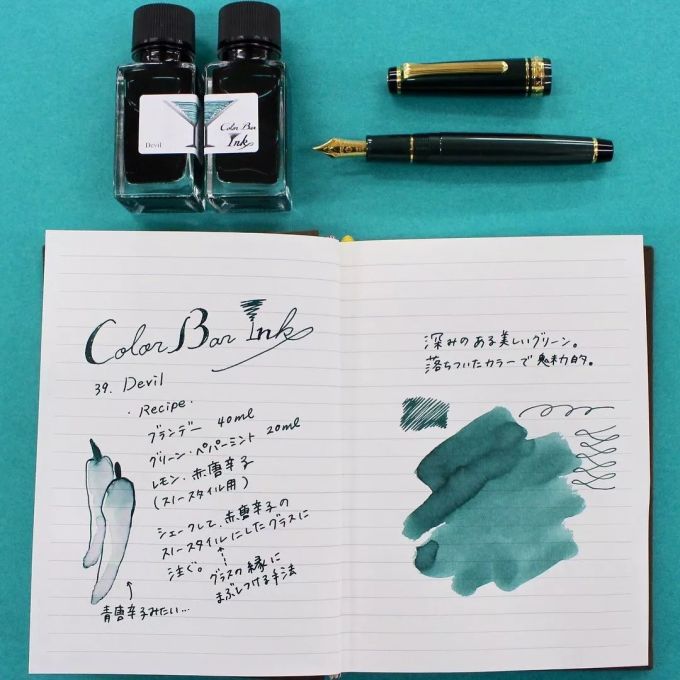 Devil
Color Bar
Ink
Color Bar Ink
39. Devil
・Recipe・
ブランデー 40ml
グリーン・ペパーミント 20ml
レモン・赤唐辛子
(スノースタイル用)
シェークして、赤唐辛子の
スノースタイルにしたグラスに
注ぐ。
グラスの縁に
まぶしつける手法
青唐辛子みたい…
深みのある美しいグリーン。
落ちついたカラーで魅力的。